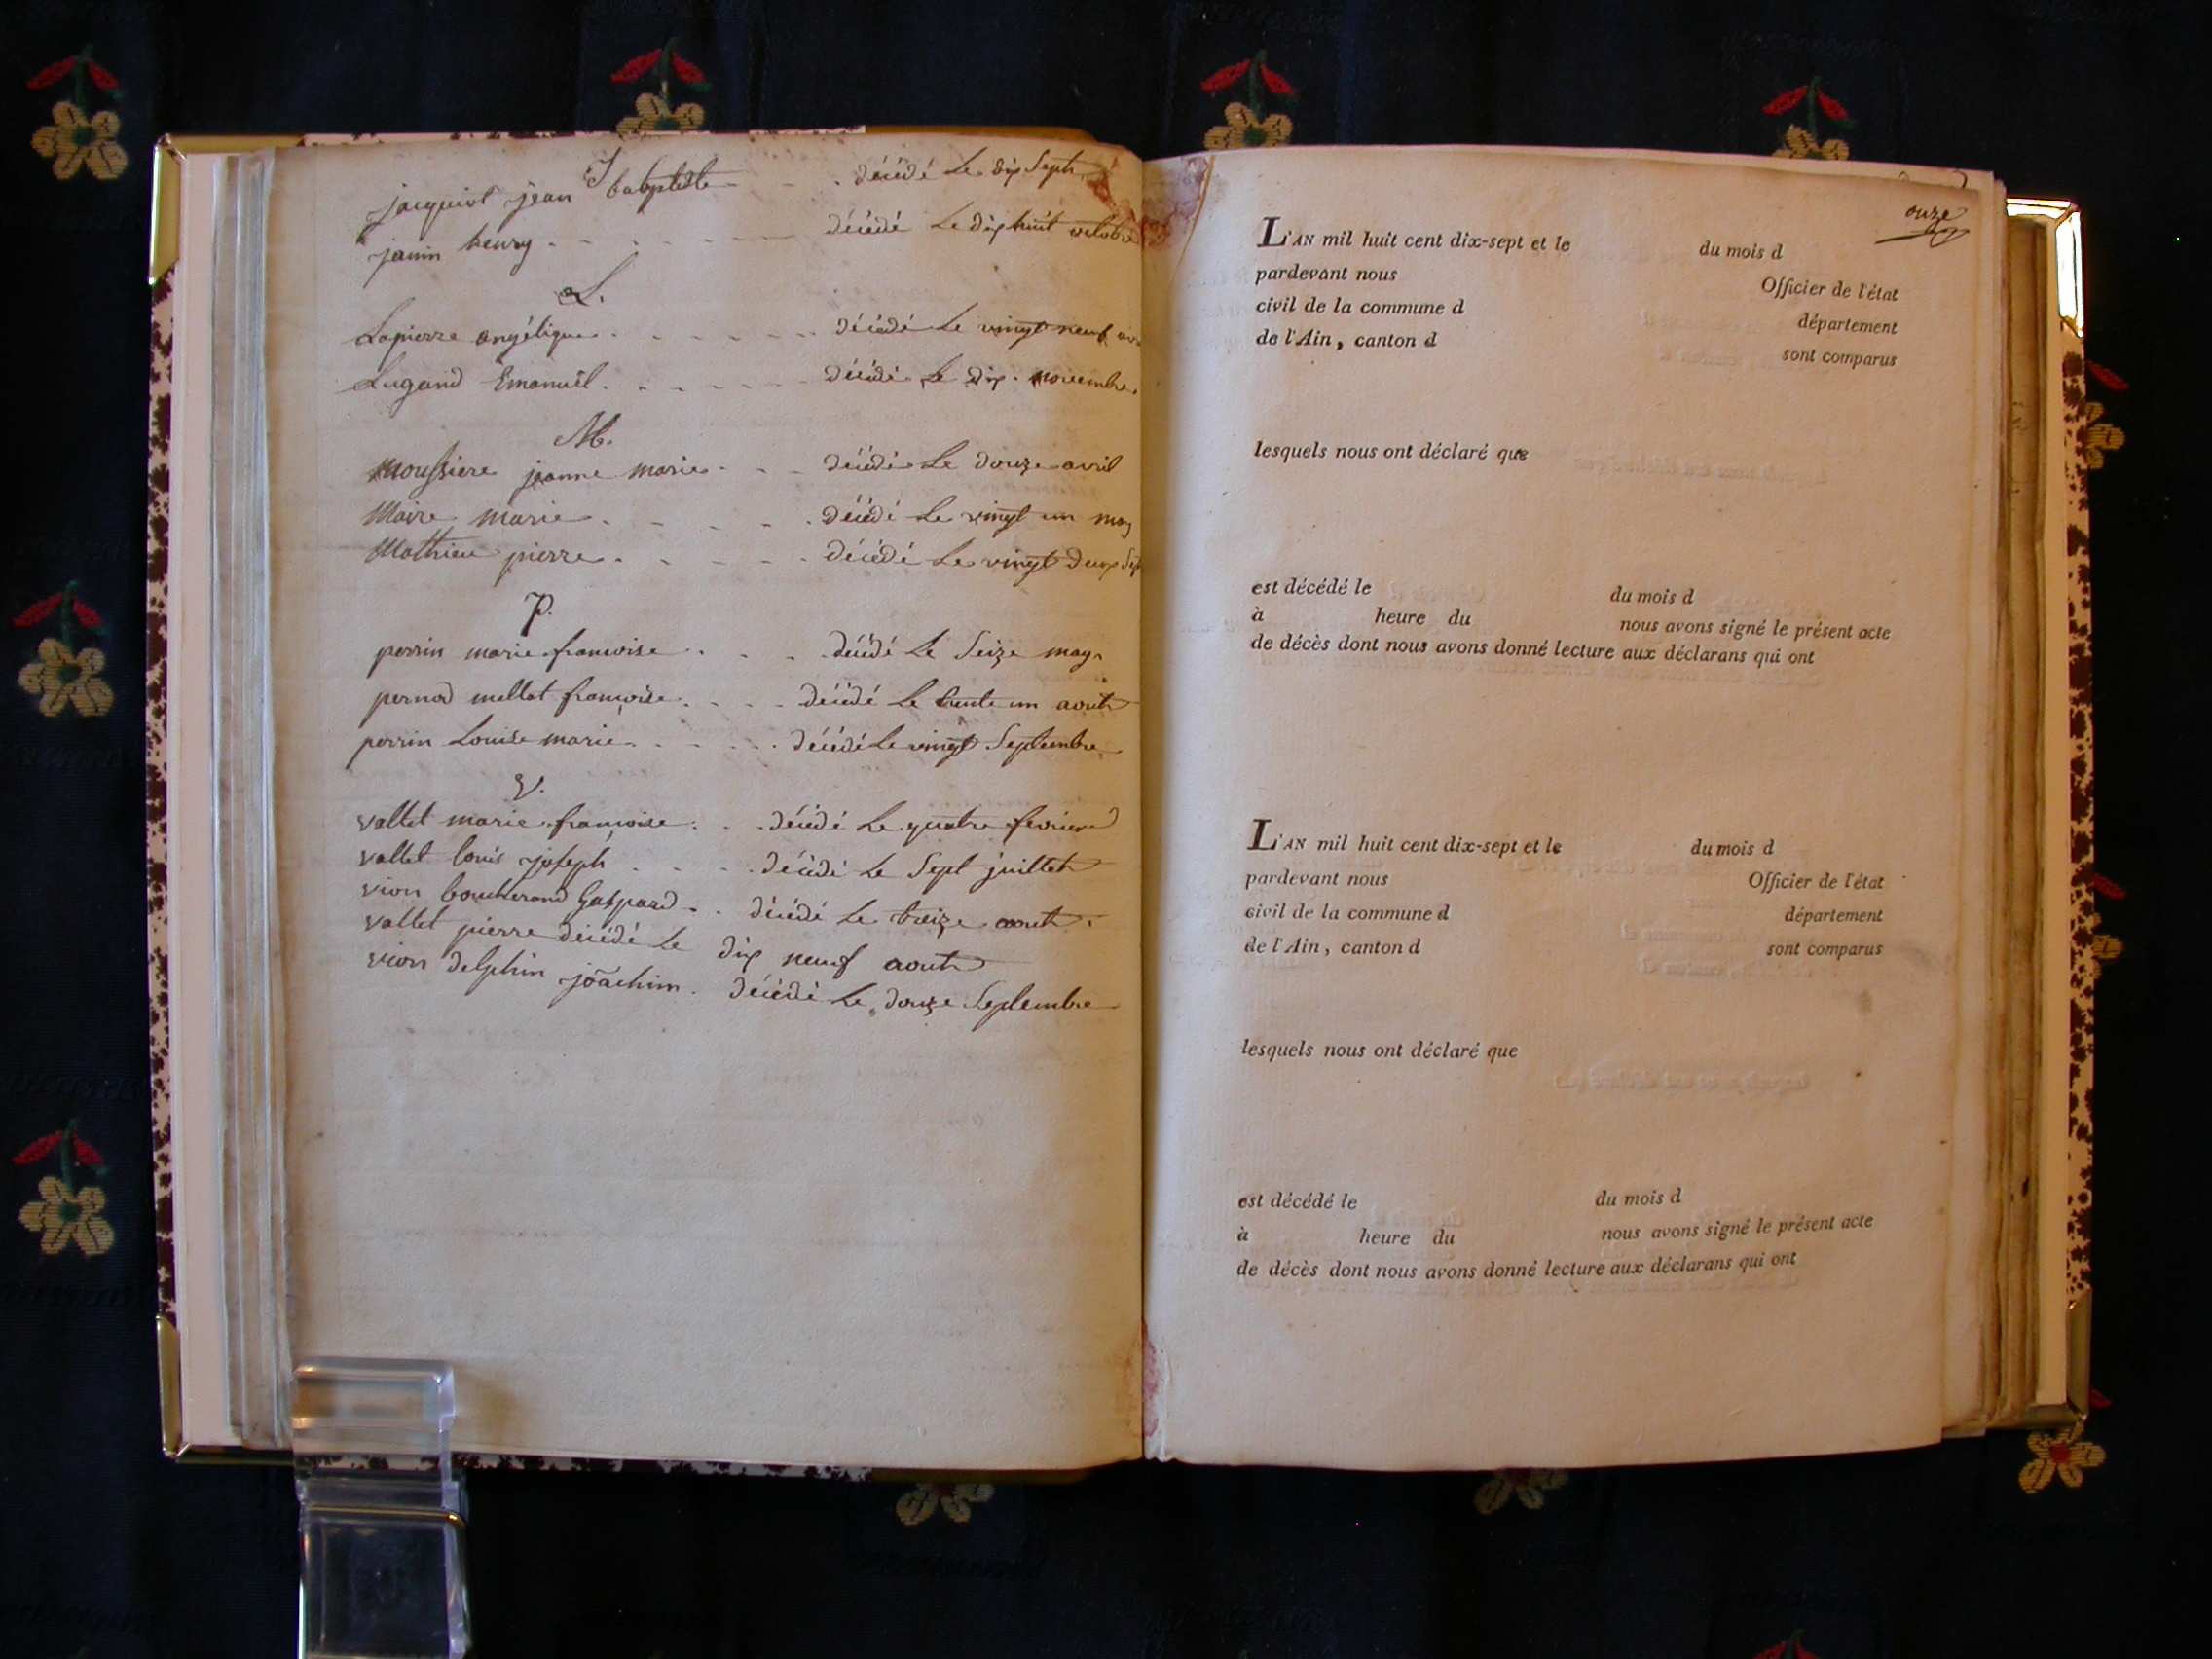 J
jacquiot jean baptiste - - . décédé le dix sept
janin henry - - - - - - décédé le dix huit octobre
L.
Lapierre angélique - - - - - - décédé le vingt neuf
Lugand Emanuël - - - - - - décédé le dix novembre
M.
moussiere jeanne marie - - - décédé le douze avril
Maire marie - - - - - décédé le vingt un may
Mathieu pierre - - - - - décédé le vingt deux
P.
perrin marie françoise . . . décédé le seize may
pernod mellot françoise - - - décédé le trente un aout
perrin Louise marie - - - - décédé le vingt septembre
V.
vallet marie françoise . . . décédé le quatre fevrier
vallet louis joseph - - - - décédé le sept juillet
vion boucherand Gaspard - . décédé le treize aout .
vallet pierre décédé le dix neuf aout
vion delphin joachim . décédé le douze septembre
onze
L'AN mil huit cent dix-sept et le du mois d
pardevant nous Officier de l'état
civil de la commune d département
de l'Ain, canton d sont comparus
lesquels nous ont déclaré que
est décédé le du mois d
à heure du nous avons signé le présent acte
de décès dont nous avons donné lecture aux déclarans qui ont
L'AN mil huit cent dix-sept et le du mois d
pardevant nous Officier de l'état
civil de la commune d département
de l'Ain, canton d sont comparus
lesquels nous ont déclaré que
est décédé le du mois d
à heure du nous avons signé le présent acte
de décès dont nous avons donné lecture aux déclarans qui ont